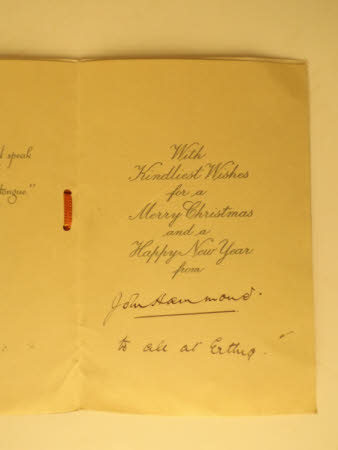 speak
tongue."
With
Kindliest Wishes
for a
Merry Christmas
and a
Happy New Year
from
John Hammond.
to all at Erthig.